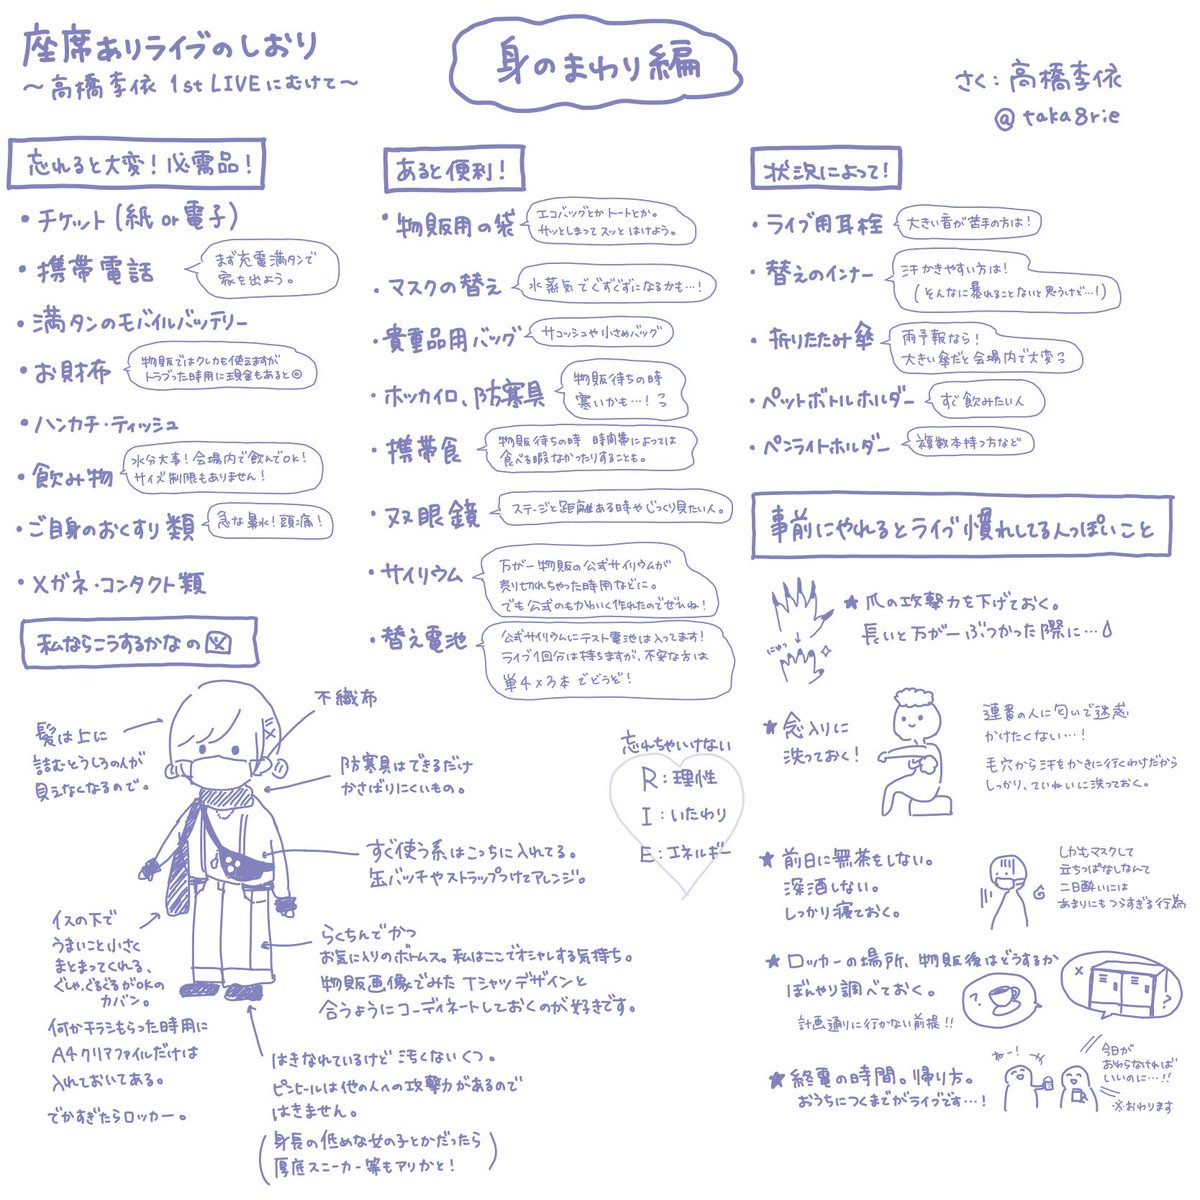 座席ありライブのしおり
～高橋李依 1st LIVEにむけて～
身のまわり編
さく：高橋李依
@taka8rie
忘れると大変！必需品！
・チケット（紙or電子）
・携帯電話
まず充電満タンで
家を出よう。
・満タンのモバイルバッテリー
・お財布
物販ではクレカも使えますが
トラブった時用に現金もあると◎
・ハンカチ・ティッシュ
・飲み物
水分大事！会場内で飲んでOK！
サイズ制限もありません！
・ご自身のおくすり類
急な鼻水！頭痛！
・メガネ・コンタクト類
あると便利！
・物販用の袋
エコバッグとかトートとか。
サッとしまってスッとはけよう。
・マスクの替え
水蒸気でぐずぐずになるかも…！
・貴重品用バッグ
サコッシュや小さめバッグ
・ホッカイロ、防寒具
物販待ちの時
寒いかも…！
・携帯食
物販待ちの時 時間帯によっては
食べる暇なかったりすることも。
・双眼鏡
ステージと距離ある時やじっくり見たい人。
・サイリウム
万が一物販の公式サイリウムが
売り切れちゃった時用などに。
でも公式のもかわいく作れたのでぜひね！
・替え電池
公式サイリウムにテスト電池は入ってます！
ライブ1回分は持ちますが、不安な方は
単4×3本でどうぞ！
状況によって！
・ライブ用耳栓
大きい音が苦手の方は！
・替えのインナー
汗かきやすい方は！
（そんなに暴れることないと思うけど…！）
・折りたたみ傘
雨予報なら！
大きい傘だと会場内で大変っ
・ペットボトルホルダー
すぐ飲みたい人
・ペンライトホルダー
複数本持つ方など
事前にやれるとライブ慣れしてる人っぽいこと
★爪の攻撃力を下げておく。
長いと万が一ぶつかった際に…
★念入りに
洗っておく！
連番の人に匂いで迷惑
かけたくない…！
毛穴から汗をかきに行くわけだから
しっかり、ていねいに洗っておく。
★前日に無茶をしない。
深酒しない。
しっかり寝ておく。
しかもマスクして
立ちっぱなしなんて
二日酔いには
あまりにもつらすぎる行為
★ロッカーの場所、物販後はどうするか
ぼんやり調べておく。
計画通りに行かない前提!!
★終電の時間。帰り方。
おうちにつくまでがライブです…！
ねー！
今日が
おわらなければ
いいのに…!!
※おわります
私ならこうするかなの図
髪は上に
詰むとうしろの人が
見えなくなるので。
不織布
防寒具はできるだけ
かさばりにくいもの。
すぐ使う系はこっちに入れてる。
缶バッチやストラップつけてアレンジ。
イスの下で
うまいこと小さく
まとまってくれる、
ぐしゃ、ぐるぐるがOKの
カバン。
何かチラシもらった時用に
A4クリアファイルだけは
入れておいてある。
でかすぎたらロッカー。
らくちんでかつ
お気に入りのボトムス。私はここでオシャレする気持ち。
物販画像でみたTシャツデザインと
合うようにコーディネートしておくのが好きです。
はきなれているけど汚くないくつ。
ピンヒールは他の人への攻撃力があるので
はきません。
（身長の低めな女の子とかだったら
厚底スニーカー等もアリかと！）
忘れちゃいけない
R：理性
I：いたわり
E：エネルギー